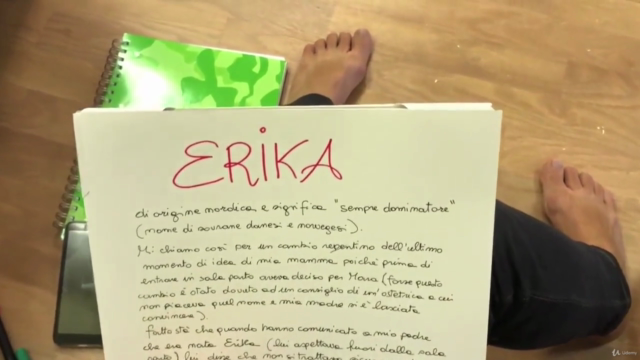 ERIKA
di origine nordica e significa "sempre dominatore"
(nome di sovrane danesi e norvegesi).
Mi chiamo così per un cambio repentino dell'ultimo
momento di idea di mia mamma poiché prima di
entrare in sala parto aveva deciso per Mara (forse questo
cambio è stato dovuto ad un consiglio di un'ostetrica a cui
non piaceva quel nome e mia madre si è lasciata
convincere)
fatto sta che quando hanno comunicato a mio padre
che era nata Erika (lui aspettava fuori dalla sala
parto) lui disse che non si trattava
Udemy